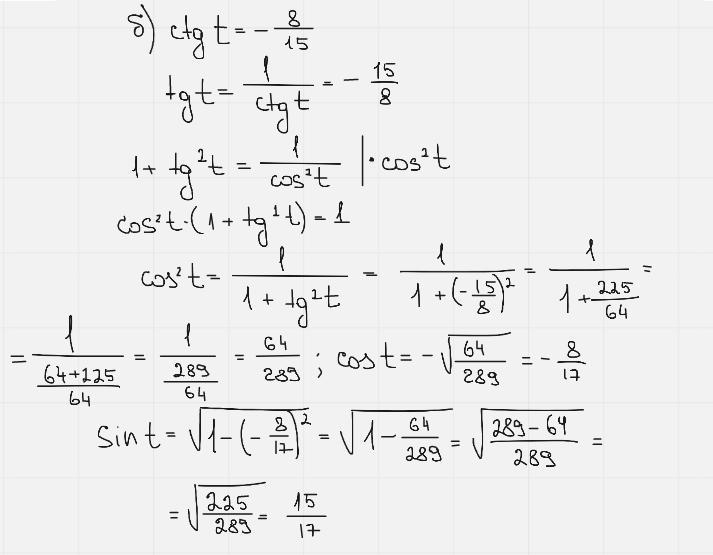 б) ctg t = - 8/15
tg t = 1/(ctg t) = - 15/8
1 + tg²t = 1/(cos²t) | · cos²t
cos²t · (1 + tg²t) = 1
cos²t = 1/(1 + tg²t) = 1/(1 + (-15/8)²) = 1/(1 + 225/64) =
= 1/((64+225)/64) = 1/(289/64) = 64/289 ; cos t = -√(64/289) = - 8/17
sin t = √(1 - (-8/17)²) = √(1 - 64/289) = √((289-64)/289) =
= √(225/289) = 15/17